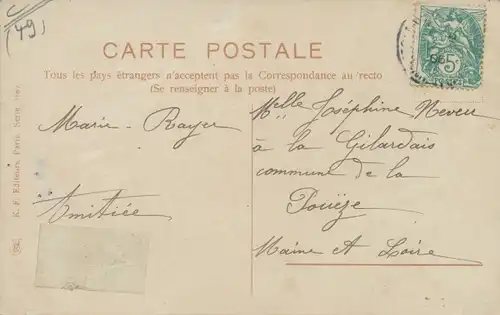 (49)
CARTE POSTALE
Tous les pays étrangers n'acceptent pas la Correspondance au recto
(Se renseigner à la poste)
Marie-Rayer
Amitiée
Melle Joséphine Neveu
à la Gilardais
commune de la
Pouëze
Maine et Loire
5c
K. F. Editeurs, Paris. Série